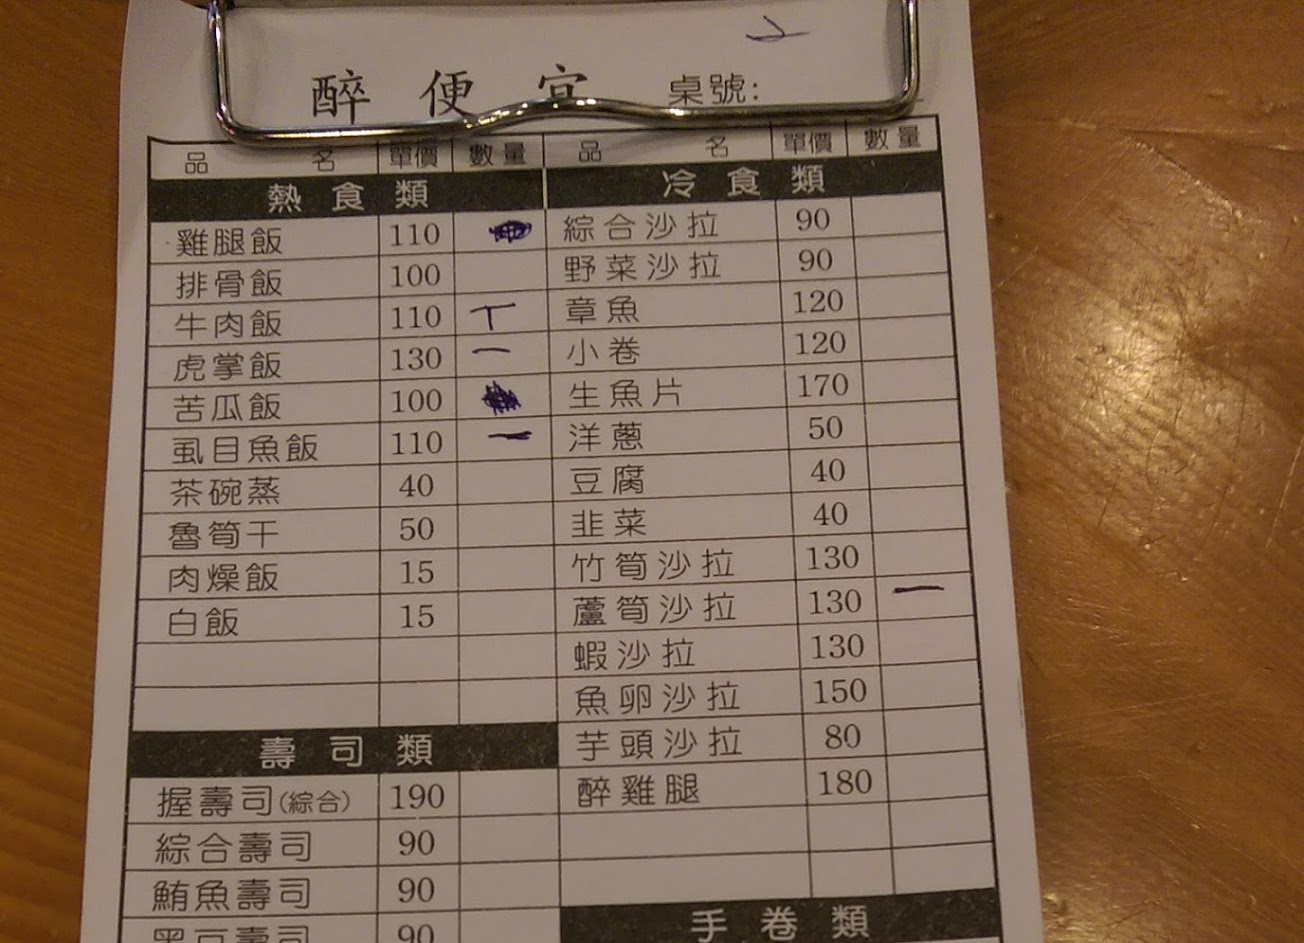 醉便宜 桌號: 2
品名 單價 數量 品名 單價 數量
熱食類
雞腿飯 110
排骨飯 100
牛肉飯 110 丅
虎掌飯 130 一
苦瓜飯 100
虱目魚飯 110 一
茶碗蒸 40
魯筍干 50
肉燥飯 15
白飯 15
壽司類
握壽司(綜合) 190
綜合壽司 90
鮪魚壽司 90
黑豆壽司 90
冷食類
綜合沙拉 90
野菜沙拉 90
章魚 120
小卷 120
生魚片 170
洋蔥 50
豆腐 40
韭菜 40
竹筍沙拉 130
蘆筍沙拉 130 一
蝦沙拉 130
魚卵沙拉 150
芋頭沙拉 80
醉雞腿 180
手卷類